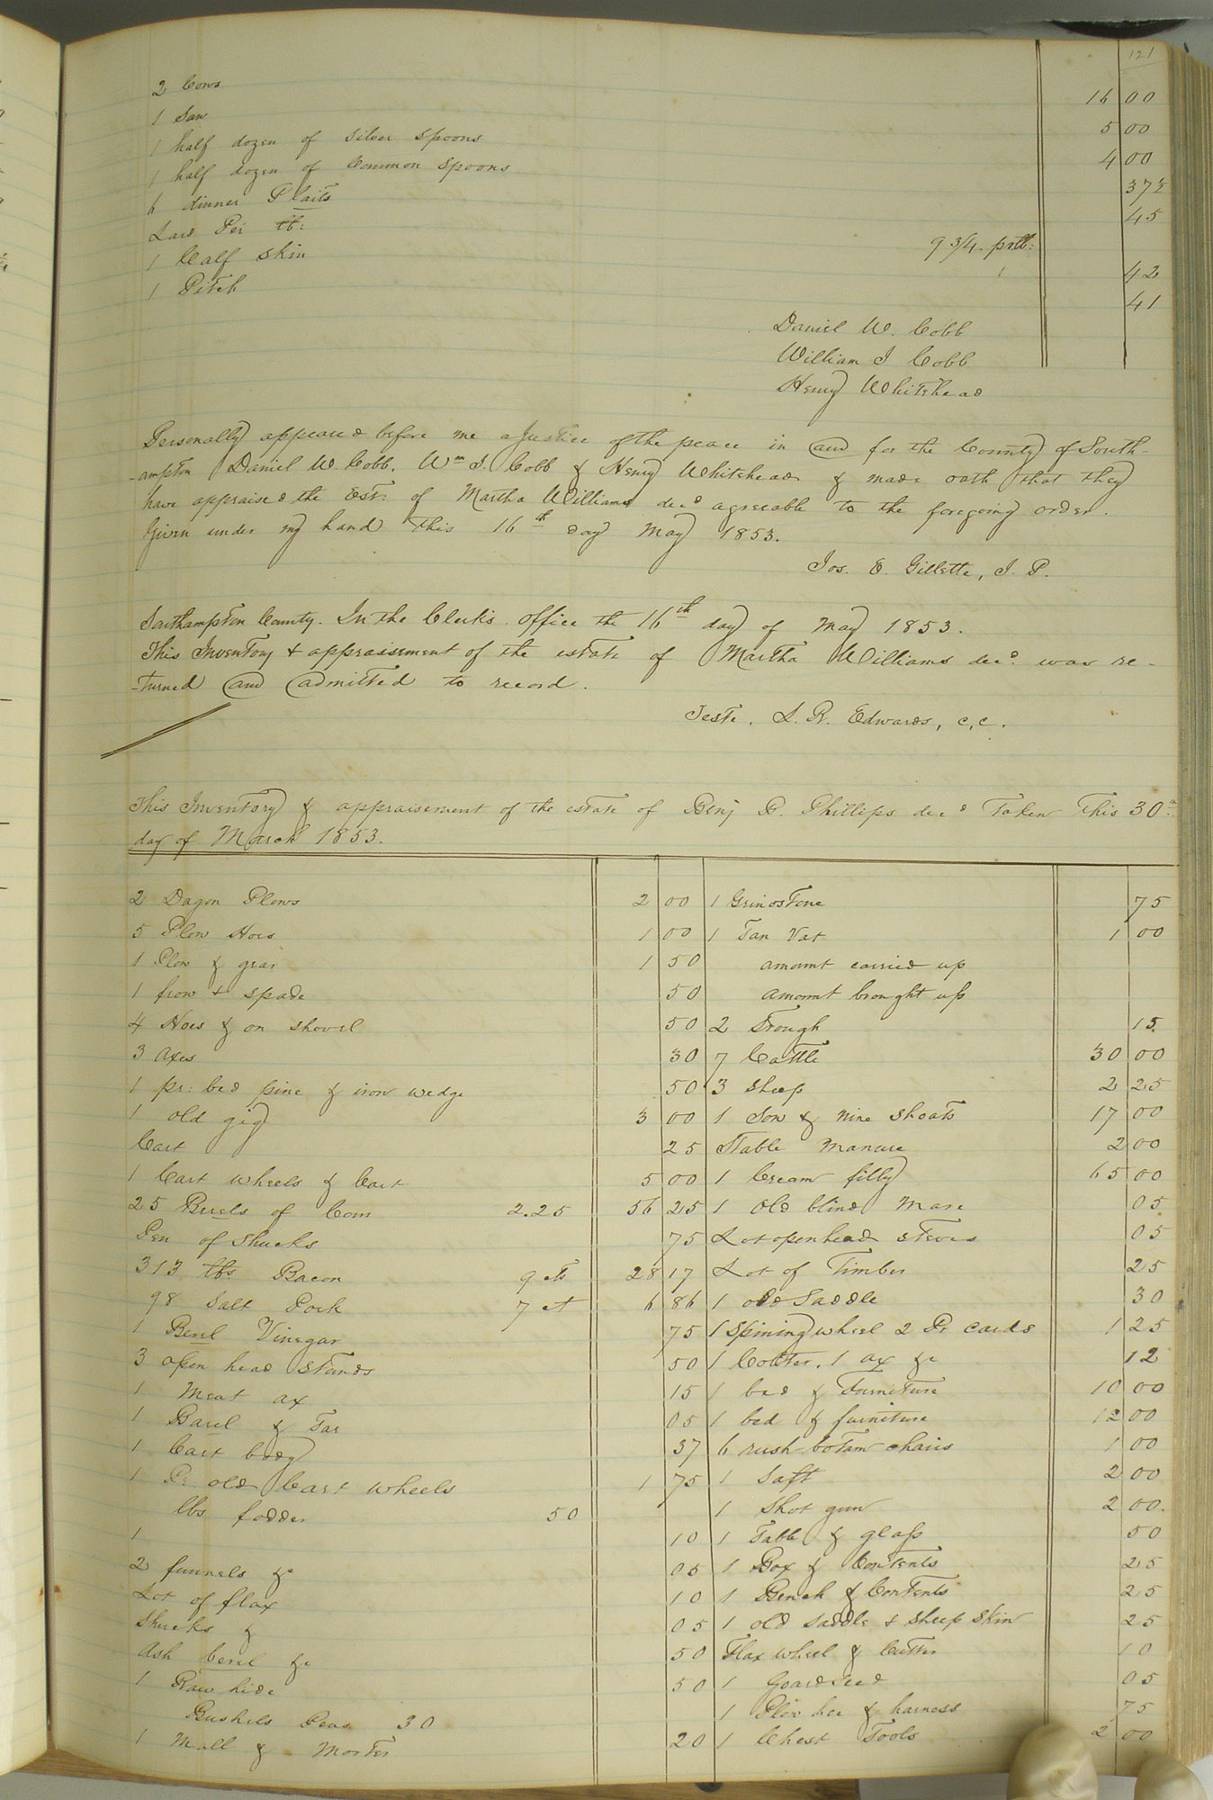 121
2 Cows 16 00
1 Saw 5 00
1 half dozen of Silver Spoons 4 00
1 half dozen of Common Spoons 37½
6 dinner Plaits 45
Lard Per lb: 9 3/4 prlb:
1 Calf Skin 1 42
1 Pitch 41
Daniel W. Cobb
William J Cobb
Henry Whitehead
Personally appeared before me a Justice of the peace in and for the County of South-
-ampton Daniel W. Cobb, Wm J. Cobb & Henry Whitehead & made oath that they
have appraised the Est: of Martha Williams decd agreeable to the foregoing order.
Given under my hand this 16th day May 1853.
Jos. E. Gillette, J. P.
Southampton County. In the Clerk's office the 16th day of May 1853.
This Inventory & appraisement of the estate of Martha Williams decd. was re-
-turned and admitted to record.
Teste. L. R. Edwards, c.c.
This Inventory & appraisement of the estate of Benj D. Phillips decd Taken This 30th
day of March 1853.
2 Dagon Plows 2 00
5 Plow Hoes 1 00
1 Plow & gear 1 50
1 frow & spade 50
4 Hoes & on shovel 50
3 axes 30
1 pr: bed pine & iron wedge 50
1 old gig 3 00
Cart 25
1 Cart wheels & Cart 5 00
25 Barels of Corn 2.25 56 25
Pen of Shucks 75
313 lbs Bacon 9 cts 28 17
98 Salt Pork 7 ct 6 86
1 Barel Vinegar 75
3 open head Stands 50
1 Meat ax 15
1 Barel & Tar 05
1 Cart body 37
1 Pr old Cart wheels 1 75
lbs fodder 50
1 10
2 funnels &c 05
Lot of flax 10
Shucks & 05
Ash barel &c 50
1 Raw hide 50
Bushels Peas 30
1 Mall & Morter 20
1 Grindstone 75
1 Tan Vat 1 00
amount carried up
amount brought up
2 Trough 15
7 Cattle 30 00
3 Sheep 2 25
1 Sow & Nine Shoats 17 00
Stable Manure 2 00
1 Cream filly 65 00
1 Old blind Mare 05
Lot openhead steves 05
Lot of Timber 25
1 old Saddle 30
1 Spining wheel 2 Pr cards 1 25
1 Coulter, 1 ax &c 12
1 bed & Furniture 10 00
1 bed & furniture 12 00
6 rush botam chairs 1 00
1 Saft 2 00
1 Shot gun 2 00.
1 Table & glass 50
1 Box & Contents 25
1 Bench & Contents 25
1 old saddle & sheep skin 25
Flax wheel & Cutter 10
1 Goardseed 05
1 Plow hoe & harness 75
1 Chest Tools 2 00